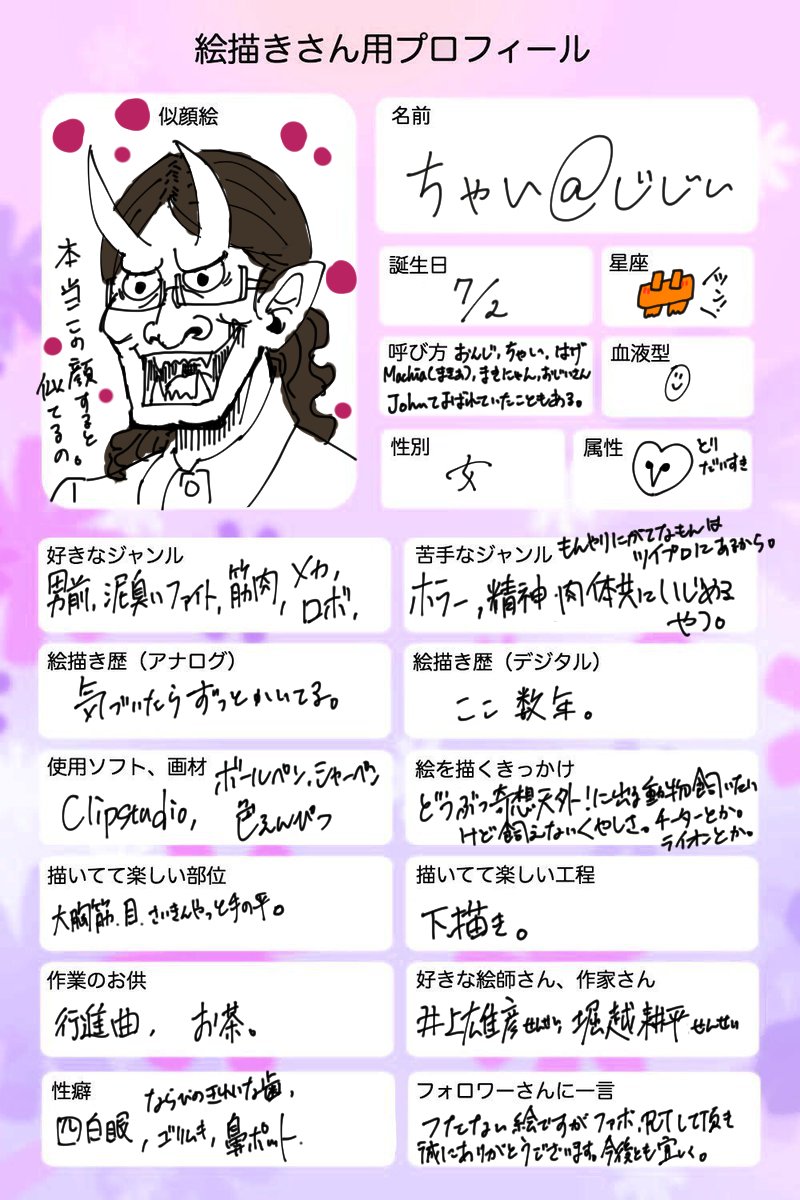 絵描きさん用プロフィール
似顔絵
本当この顔すると
似てるの。
名前
ちゃい@じじい
誕生日
7/2
星座
ツン!!
呼び方 おんじ,ちゃい,はげ
Machia(まきあ),まきにゃん,おじいさん
Johnてよばれていたこともある。
血液型
性別
女
属性
とり
だいすき
好きなジャンル
男前,泥臭いファイト,筋肉,メカ,
ロボ,
苦手なジャンル もんやりにがてなもんは
ツイプロにあるから。
ホラー,精神肉体共にいじめる
やつ。
絵描き歴(アナログ)
気づいたらずっとかいてる。
絵描き歴(デジタル)
ここ数年。
使用ソフト、画材 ボールペン,シャーペン
Clipstudio, 色えんぴつ
絵を描くきっかけ
どうぶつ奇想天外!に出る動物飼いたい
けど飼えないくやしさ。チーターとか。
ライオンとか。
描いてて楽しい部位
大胸筋,目,さいきんやっと手の平。
描いてて楽しい工程
下描き。
作業のお供
行進曲, お茶。
好きな絵師さん、作家さん
井上雄彦せんせい 堀越耕平せんせい
性癖 ならびのきれいな歯,
四白眼,ゴリムキ,鼻ポット.
フォロワーさんに一言
つたない絵ですがファボ,RTして頂き
誠にありがとうございます。今後とも宜しく。